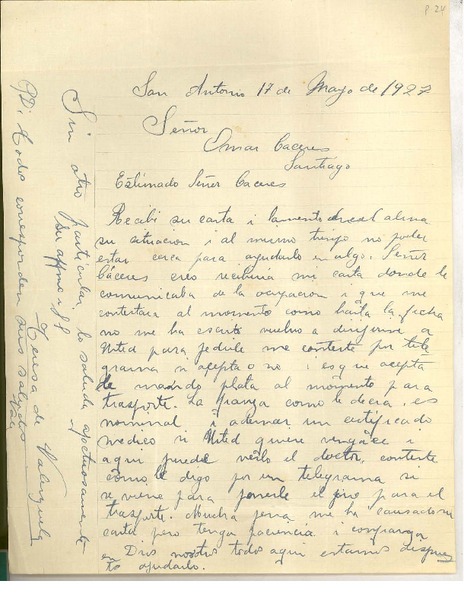 P. 24
San Antonio 17 de Mayo de 1927
Señor
Omar Caceres
Santiago
Estimado Señor Caceres
Recibi su carta i lamento en el alma
su situacion i al mismo tiempo no poder
estar cerca para ayudarlo en algo. Señor
Cáceres creo recibiria mi carta donde le
comunicaba de la ocupacion i que me
contestara al momento como hasta la fecha
no me ha escrito vuelvo a dirijirme a
Usted para pedirle me conteste por tele
grama si acepta o no i es que acepta
le mando plata al momento para
trasporte. La fianza como le decia, es
nominal i ademas un certificado
medico si Usted quiere vengase i
aqui puede verlo el doctor, conteste
como le digo por un telegrama si
se viene para ponerle el jiro para el
trasporte. Mucha pena me ha causado su
carta pero tenga paciencia i confianza
en Dios nosotros todos aqui estamos
to ayudarlo.
Sin otro particular, lo saluda afectuosamente
su affma i SS
Teresa de Valenzuela
PD: Todos corresponden sus saludos
Vale